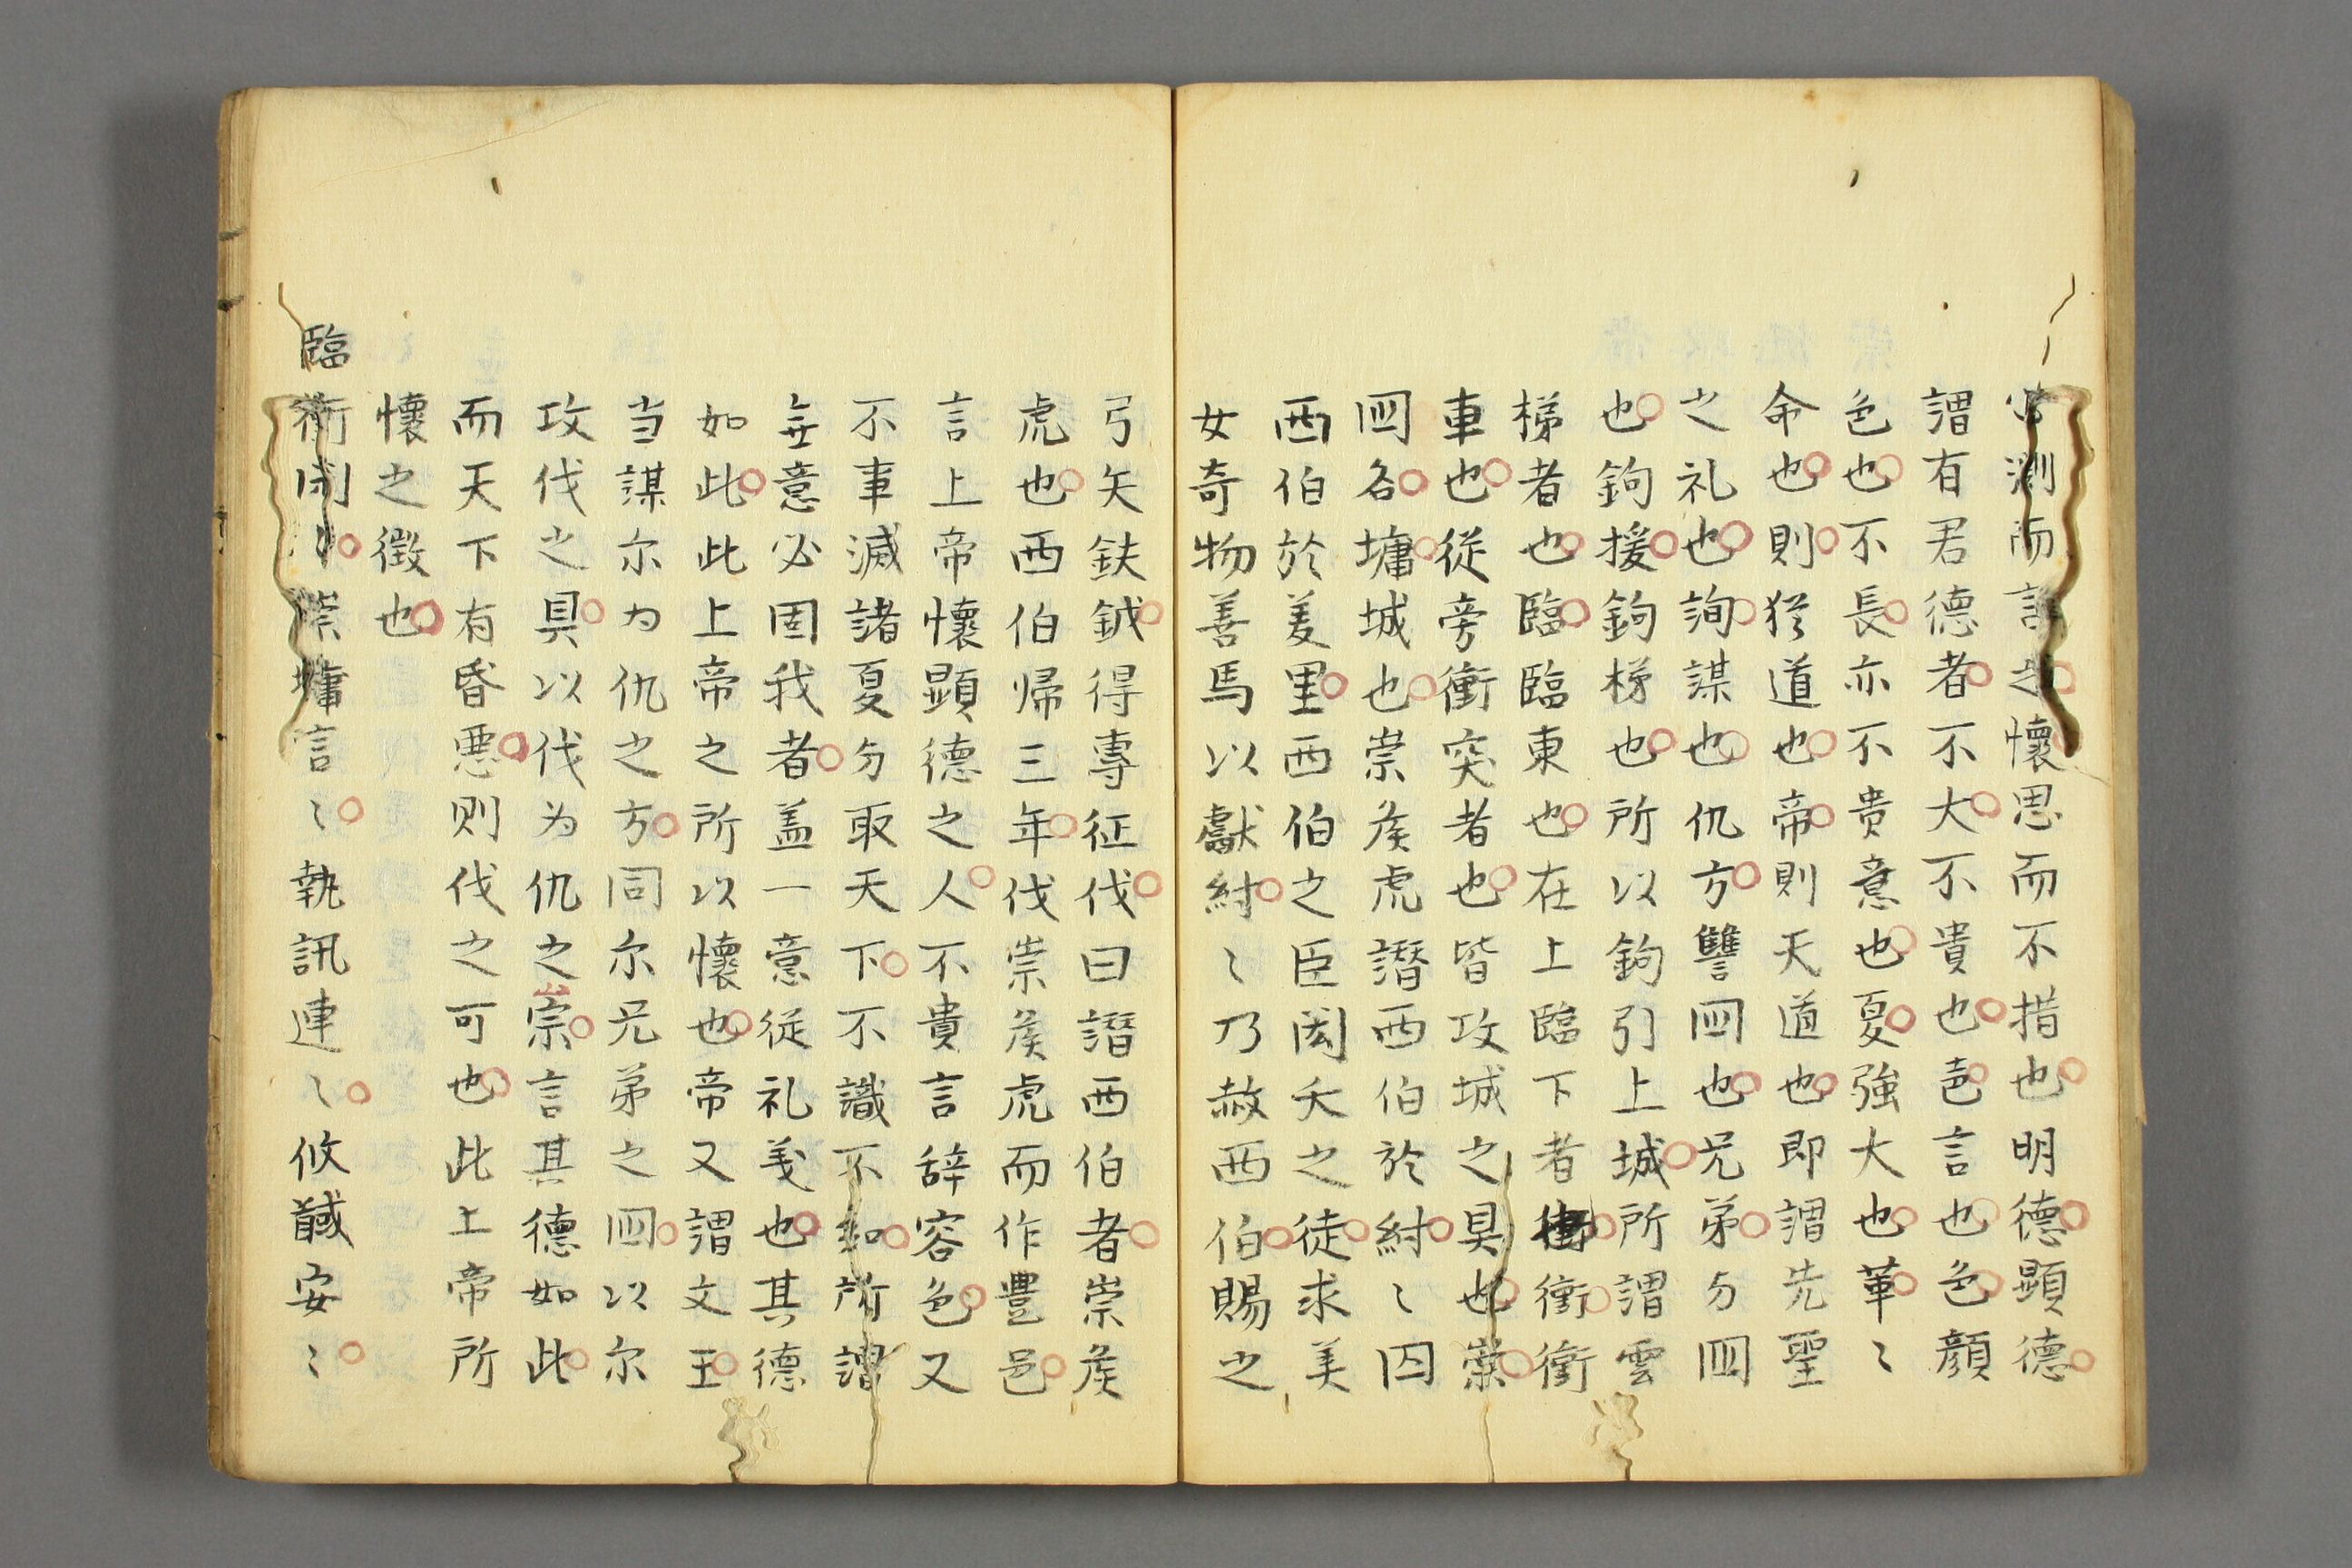 測而言之懷思而不措也明德顕德
謂有君德者不大不貴也色言也色顔
色也不長亦不贵意也夏強大也革〻
命也則猶道也帝則天道也即謂先聖
之礼也詢謀也仇方讐囯也兄弟与囯
也鉤援鉤梯也所以鉤引上城所謂雲
梯者也臨臨東也在上臨下者衝衝
車也從旁衝突者也皆攻城之具也崇
囯名墉城也崇矦虎譖西伯於紂〻囚
西伯於羑里西伯之臣閎夭之徒求美
女奇物善馬以獻紂〻乃赦西伯賜之
弓矢鈇鉞得專征伐曰譖西伯者崇矦
虎也西伯帰三年伐崇矦虎而作豊邑
言上帝懷顕德之人不貴言辞容色又
不事滅諸夏与取天下不識不知所謂
無意必固我者盖一意従礼義也其德
如此此上帝之所以懷也帝又謂文王
当謀尓为仇之方同尓兄弟之囯以尓
攻伐之具以伐为仇之宗言其德如此
而天下有昏悪则伐之可也此上帝所
懷之徴也
臨衝閑〻崇墉言〻執訊連〻攸馘安〻